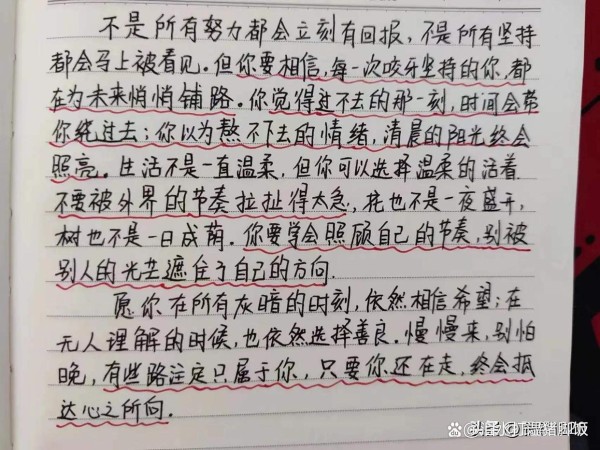 不是所有努力都会立刻有回报,不是所有坚持
都会马上被看见.但你要相信,每一次咬牙坚持的你,都
在为未来悄悄铺路.你觉得过不去的那一刻,时间会带
你绕过去;你以为熬不下去的情绪,清晨的阳光终会
照亮.生活不是一直温柔,但你可以选择温柔的活着
不要被外界的节奏拉扯得太急,花也不是一夜盛开,
树也不是一日成荫.你要学会照顾自己的节奏,别被
别人的光芒遮住了自己的方向.
愿你在所有灰暗的时刻,依然相信希望;在
无人理解的时候,也依然选择善良.慢慢来,别怕
晚,有些路注定只属于你,只要你还在走,终会抵
达心之所向.